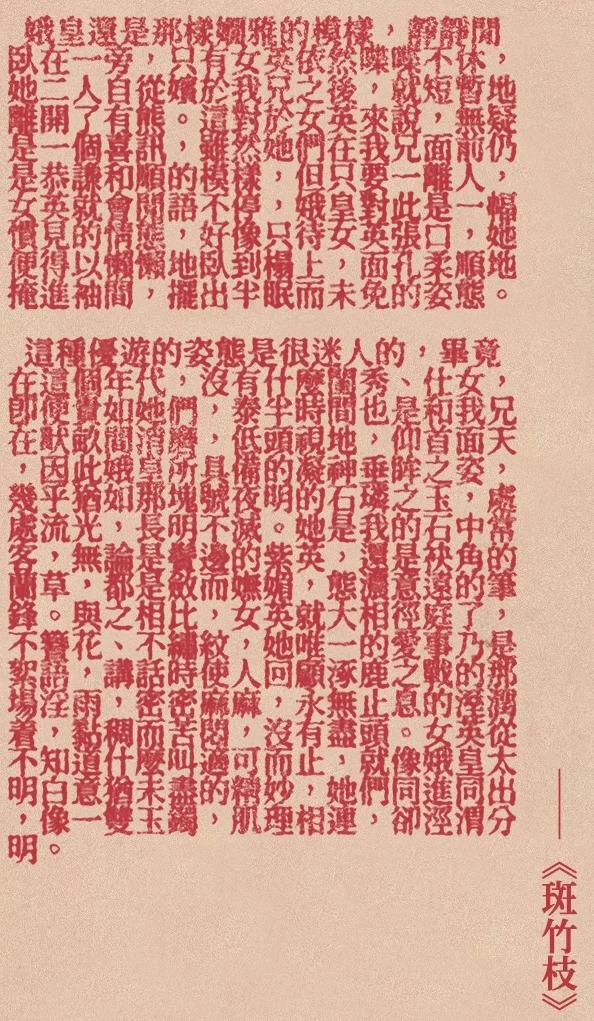 娥皇還是那樣嫻雅的模樣，靜靜閒，
臥在一旁，只有女英依然喋喋不休，
她二人自從嬪於我兄之後，就短暫地
離開了有熊。這對於女英來說，無疑
是一個喜訊，雖然她們在我兄面前仍
是恭謙和順的模樣，但只要一離人，
女英就會開語不停，娥皇對此是一幅
慣見的情態，好像只待女英張口，她
便得以懶懶地臥到榻上，面孔柔順地
掩進袖間，擺出半眠而未免的姿態。
這種優遊的姿態是很迷人的，畢竟，
在這個年代，沒有什麼閨秀、仕女，
即便貴如她們，泰半時間也是和我兄
在畝間消，低頭視地，仰首面天
，因此娥皇所具備的凝神垂眸之姿，
幾乎猶如那塊號夜明的石璞之玉，處
處流光，長明不滅。她是我的石中常
客，無論是鬢邊的紫英，還是角的
蘭草，都是敵而嫵媚，態濃意遠的筆
鋒。與之相比，女英就大相徑庭了，
不花、不繡紋，她唯一的愛事乃是
絮語，講話時使人回顧涿鹿之戰的那
場淫雨，密密麻麻，永無止息的淫潮
着，黏稠而苦悶，沒有盡頭。女英從
不知道什麼叫適可而止，就像娥皇太
明白意猶未盡的精妙，她們同進同出
，像一雙玉鐲，肌理相連，卻涇渭分
明。
——《斑竹枝》